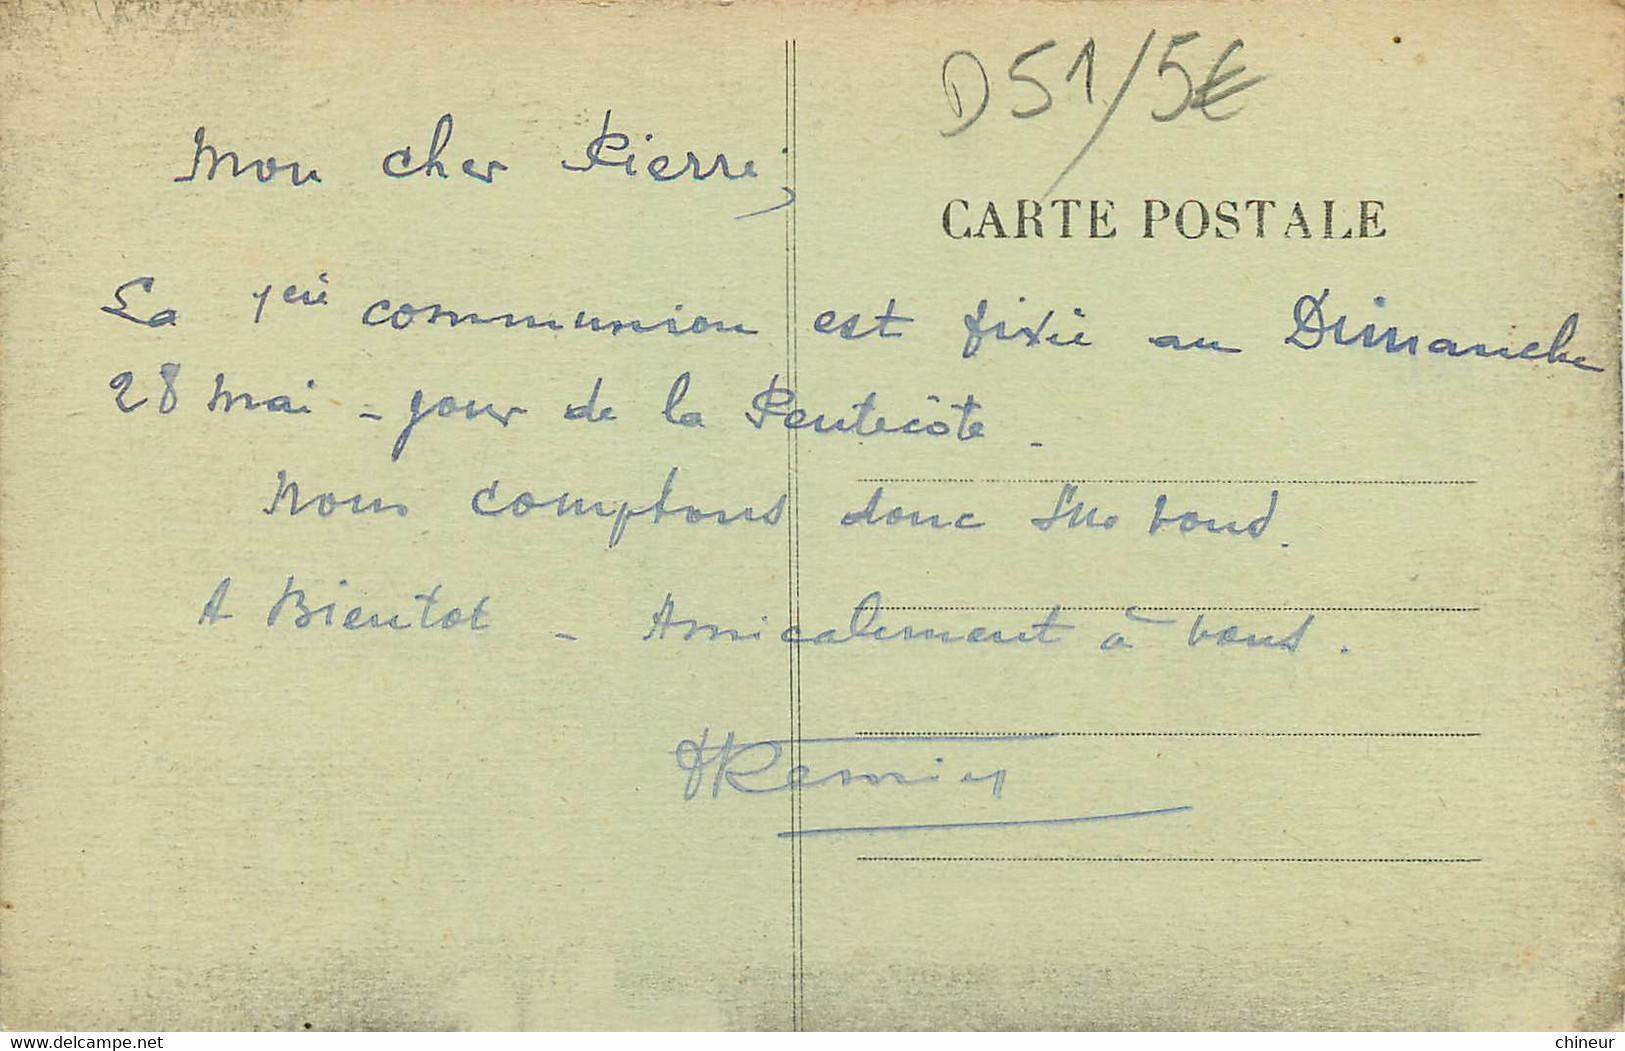 D51/5€
CARTE POSTALE
Mon cher Pierre,
La 1ère communion est fixée au Dimanche
28 mai - jour de la Pentecôte.
Nous comptons donc sur vous.
A Bientot - Amicalement à vous.
delcampe.net
chineur